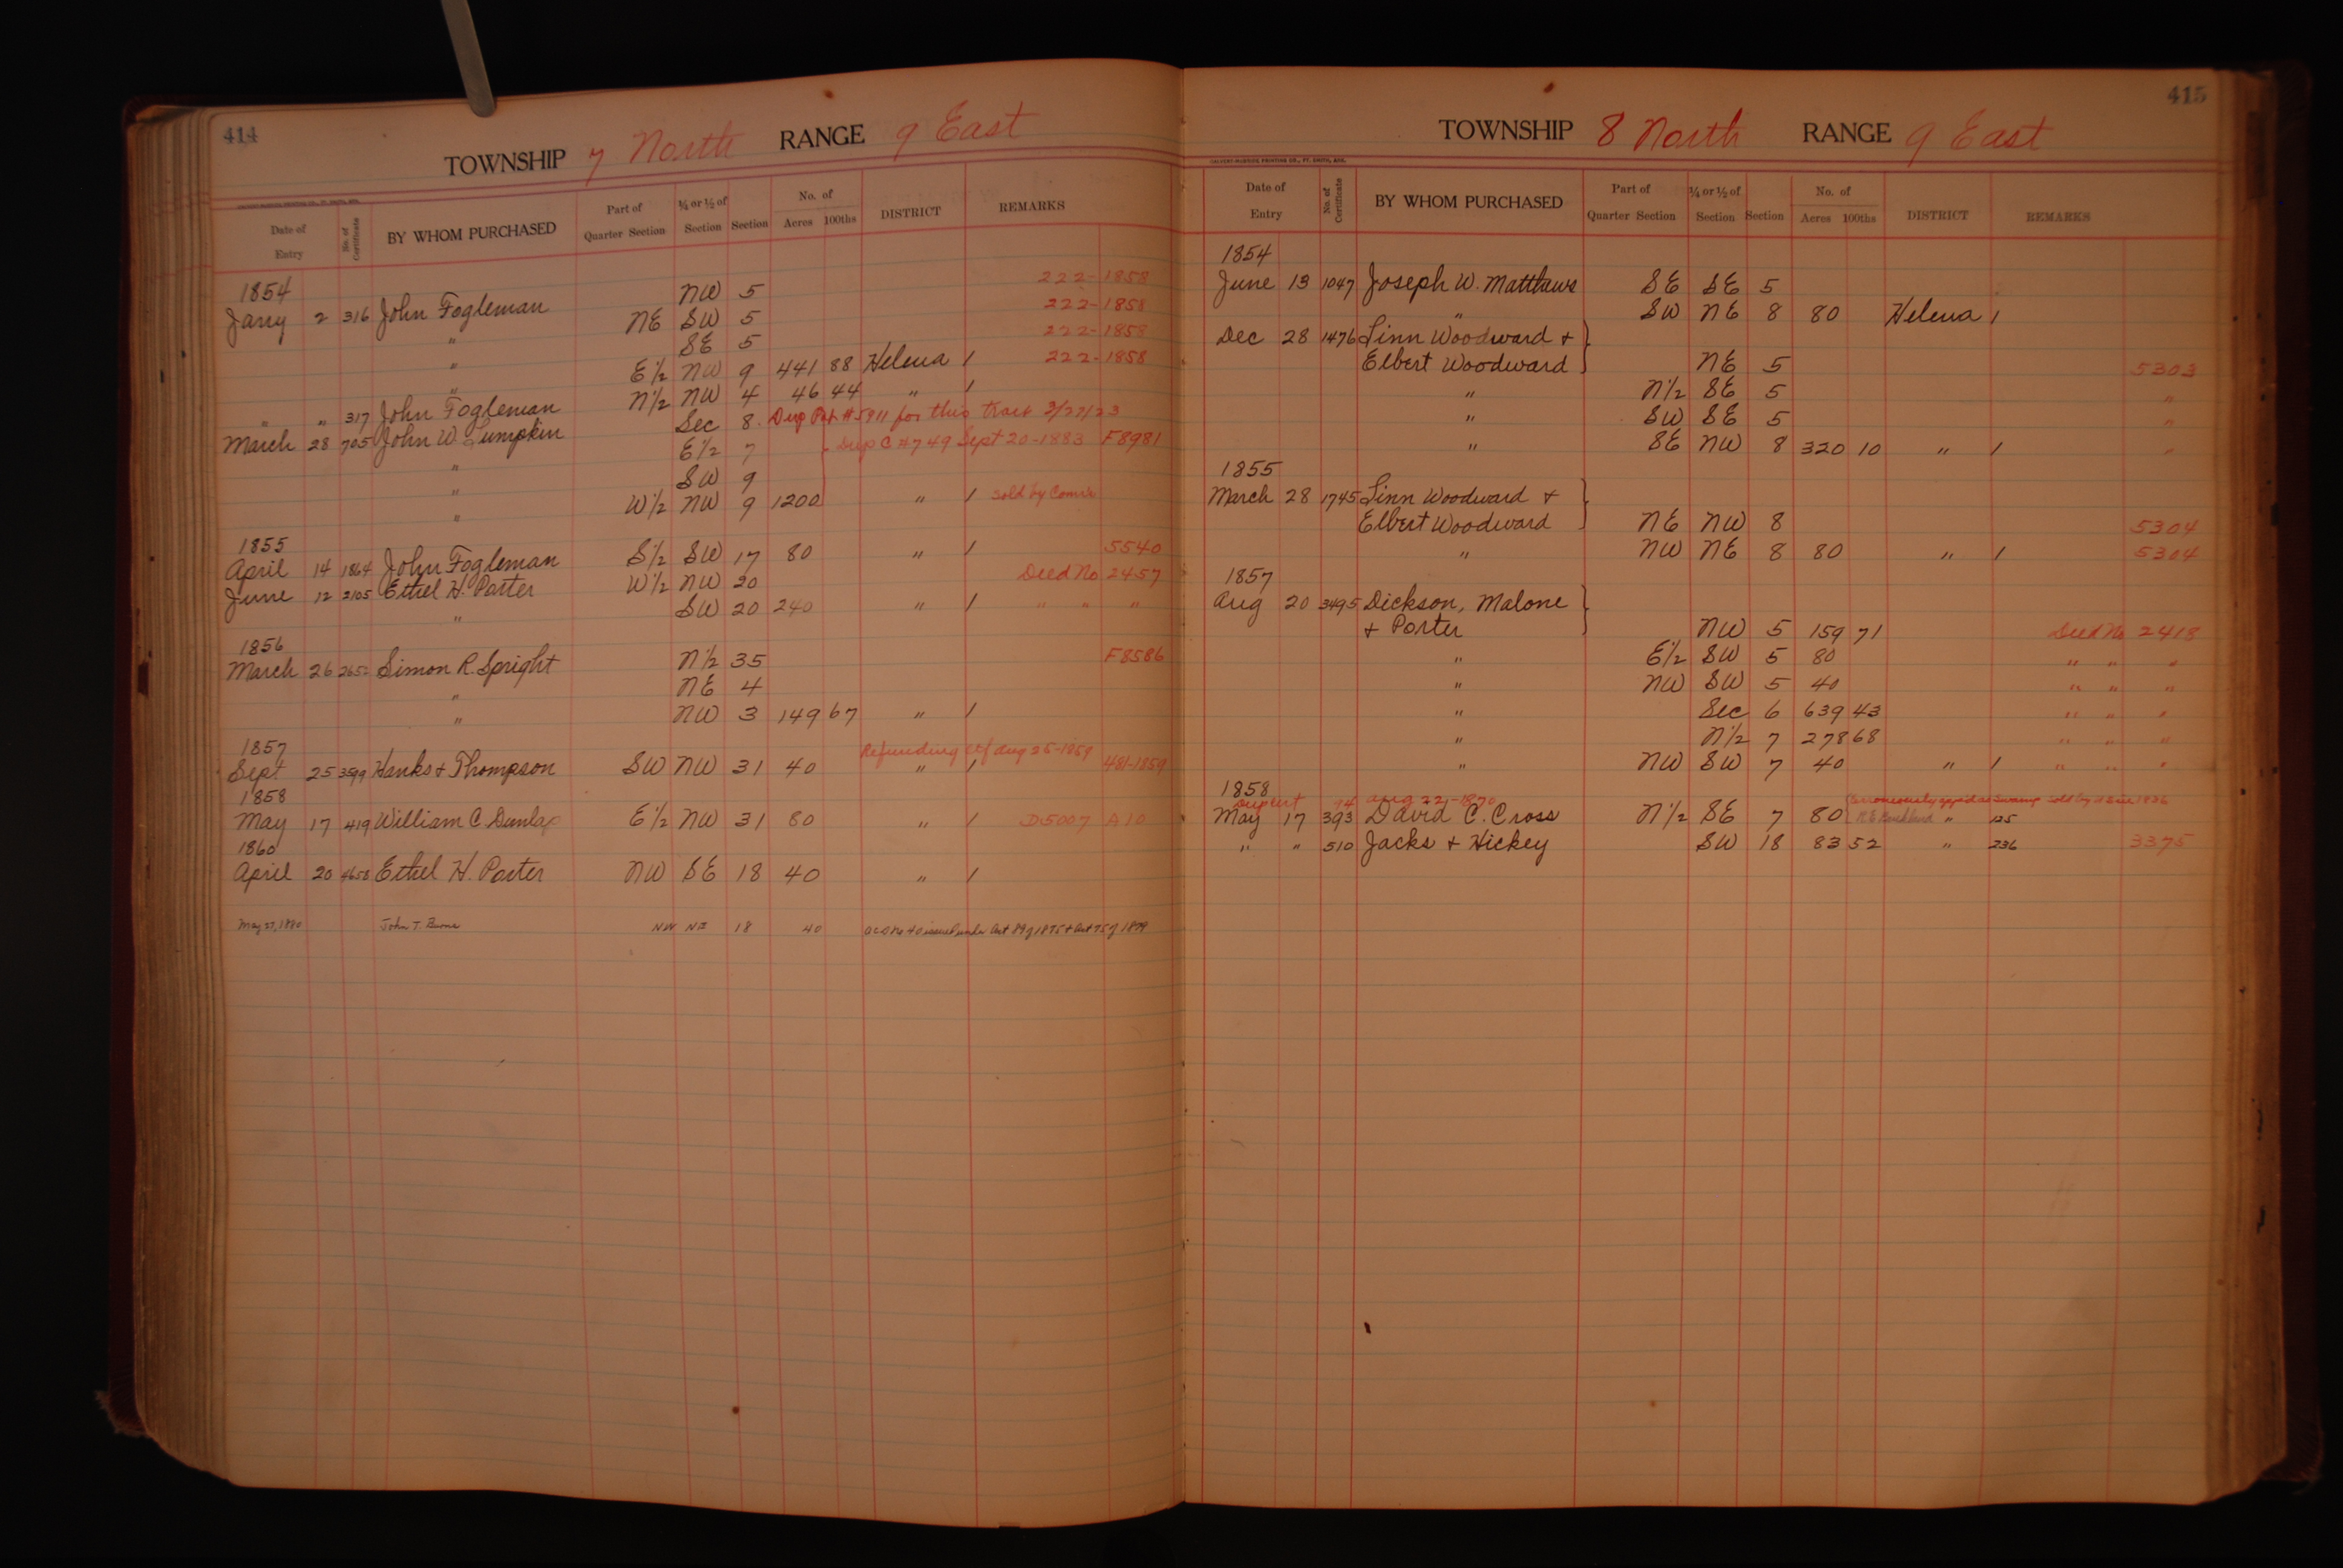 414
TOWNSHIP 7 North RANGE 9 East
Date of Entry No. of Certificate BY WHOM PURCHASED Part of Quarter Section ¼ or ½ of Section Section No. of Acres 100ths DISTRICT REMARKS
1854 NW 5 222-1858
Jany 2 316 John Fogleman NE SW 5 222-1858
" SE 5 222-1858
" E½ NW 9 441 88 Helena / 222-1858
" N½ NW 4 46 44 " /
" " 317 John Fogleman Sec 8. Dup Pat #5911 for this tract 3/27/23
March 28 705 John W. Lumpkin E½ 7 Dup C #749 Sept 20-1883 F8981
" SW 9
" W½ NW 9 1200 " / sold by Comr
"
1855
April 14 1864 John Fogleman S½ SW 17 80 " / 5540
June 12 2105 Ethel H. Porter W½ NW 20 Deed No 2457
" SW 20 240 " / " " "
1856
March 26 265 Simon R. Spright N½ 35 F8586
" NE 4
" NW 3 149 67 " /
1857 Refunding ctf Aug 25-1859
Sept 25 3599 Hanks & Thompson SW NW 31 40 " / 481-1859
1858
May 17 419 William C. Dunlap E½ NW 31 80 " / D5007 A10
1860
April 20 4658 Ethel H. Porter NW SE 18 40 " /
May 27, 1880 John T. Burns NW NE 18 40 issued under Act 89 of 1875 & Act 75 of 1879
415
TOWNSHIP 8 North RANGE 9 East
CALVERT-McBRIDE PRINTING CO., FT. SMITH, ARK.
Date of Entry No. of Certificate BY WHOM PURCHASED Part of Quarter Section ¼ or ½ of Section Section No. of Acres 100ths DISTRICT REMARKS
1854
June 13 1047 Joseph W. Matthews SE SE 5
" SW NE 8 80 Helena /
Dec 28 1476 Linn Woodward &
Elbert Woodward NE 5 5303
" N½ SE 5 "
" SW SE 5 "
" SE NW 8 320 10 " / "
1855
March 28 1745 Linn Woodward &
Elbert Woodward NE NW 8 5304
" NW NE 8 80 " / 5304
1857
Aug 20 3495 Dickson, Malone
& Porter NW 5 159 71 Deed No 2418
" E½ SW 5 80 " " "
" NW SW 5 40 " " "
" Sec 6 639 43 " " "
" N½ 7 278 68 " " "
" NW SW 7 40 " / " " "
1858
Dup cert 94 Aug 22-1870 Erroneously app'd as Swamp sold by 1836
May 17 393 David C. Cross N½ SE 7 80 " 125
" " 510 Jacks & Hickey SW 18 83 52 " 236 3375